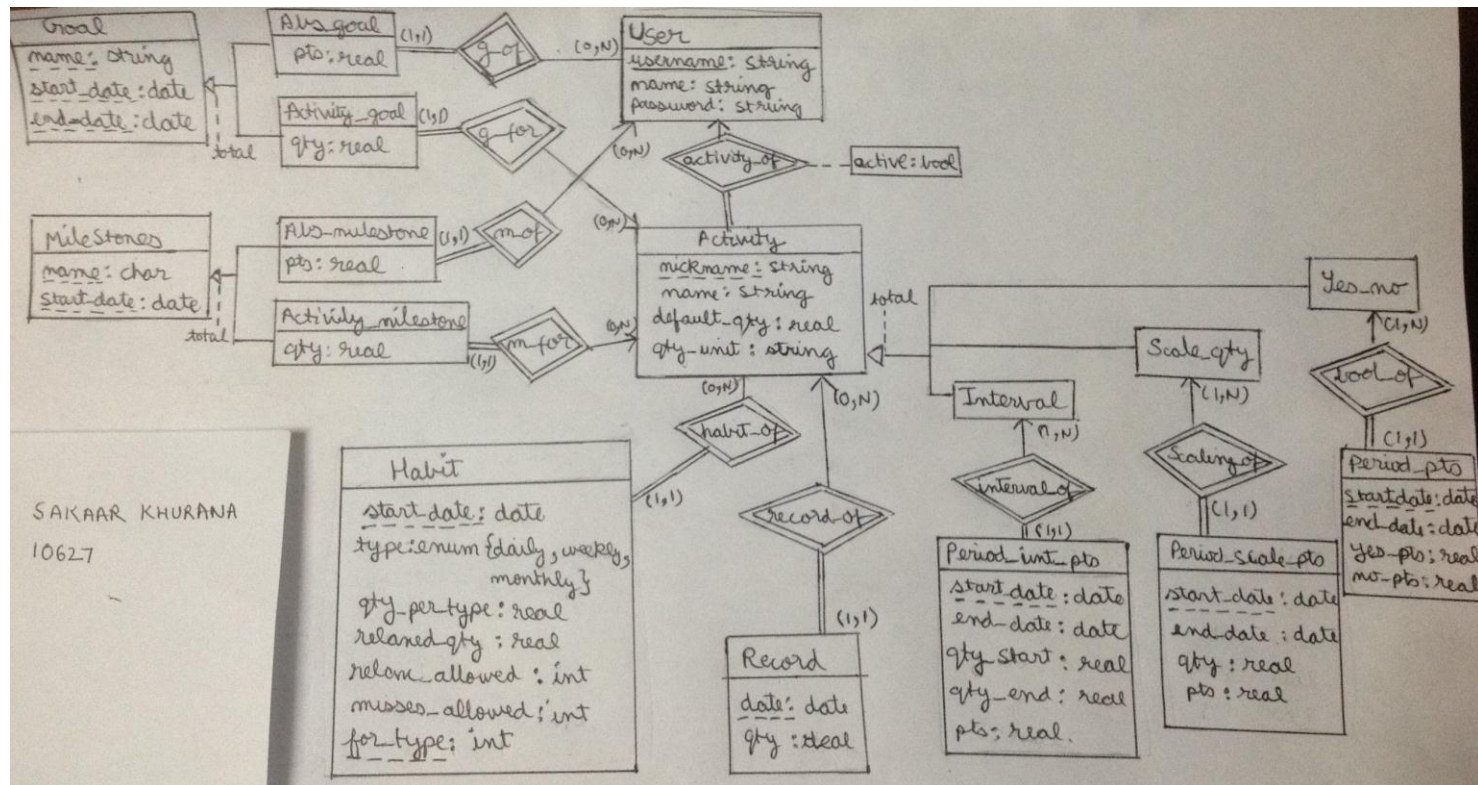 Goal
name: string
start_date: date
end_date: date
total
Abs_goal
pts: real
(1,1)
g_of
(0,N)
Activity_goal
qty: real
(1,1)
g_for
(0,N)
User
username: string
name: string
password: string
activity_of
active: bool
MileStones
name: char
start_date: date
total
Abs_milestone
pts: real
(1,1)
m_of
(0,N)
Activity_milestone
qty: real
(1,1)
m_for
(0,N)
Activity
nickname: string
name: string
default_qty: real
qty_unit: string
total
Yes_no
(1,N)
bool_of
(1,1)
Period_pts
startdate: date
end_date: date
yes_pts: real
no_pts: real
Scale_qty
(1,N)
Scaling_of
(1,1)
Period_scale_pts
start_date: date
end_date: date
qty: real
pts: real
Interval
(1,N)
interval_of
(1,1)
Period_int_pts
start_date: date
end_date: date
qty_start: real
qty_end: real
pts: real.
(0,N)
habit_of
(1,1)
Habit
start_date: date
type: enum {daily, weekly,
monthly}
qty_per_type: real
relaxed_qty: real
relax_allowed: int
misses_allowed: int
for_type: int
(0,N)
record_of
(1,1)
Record
date: date
qty: real
SAKAAR KHURANA
10627